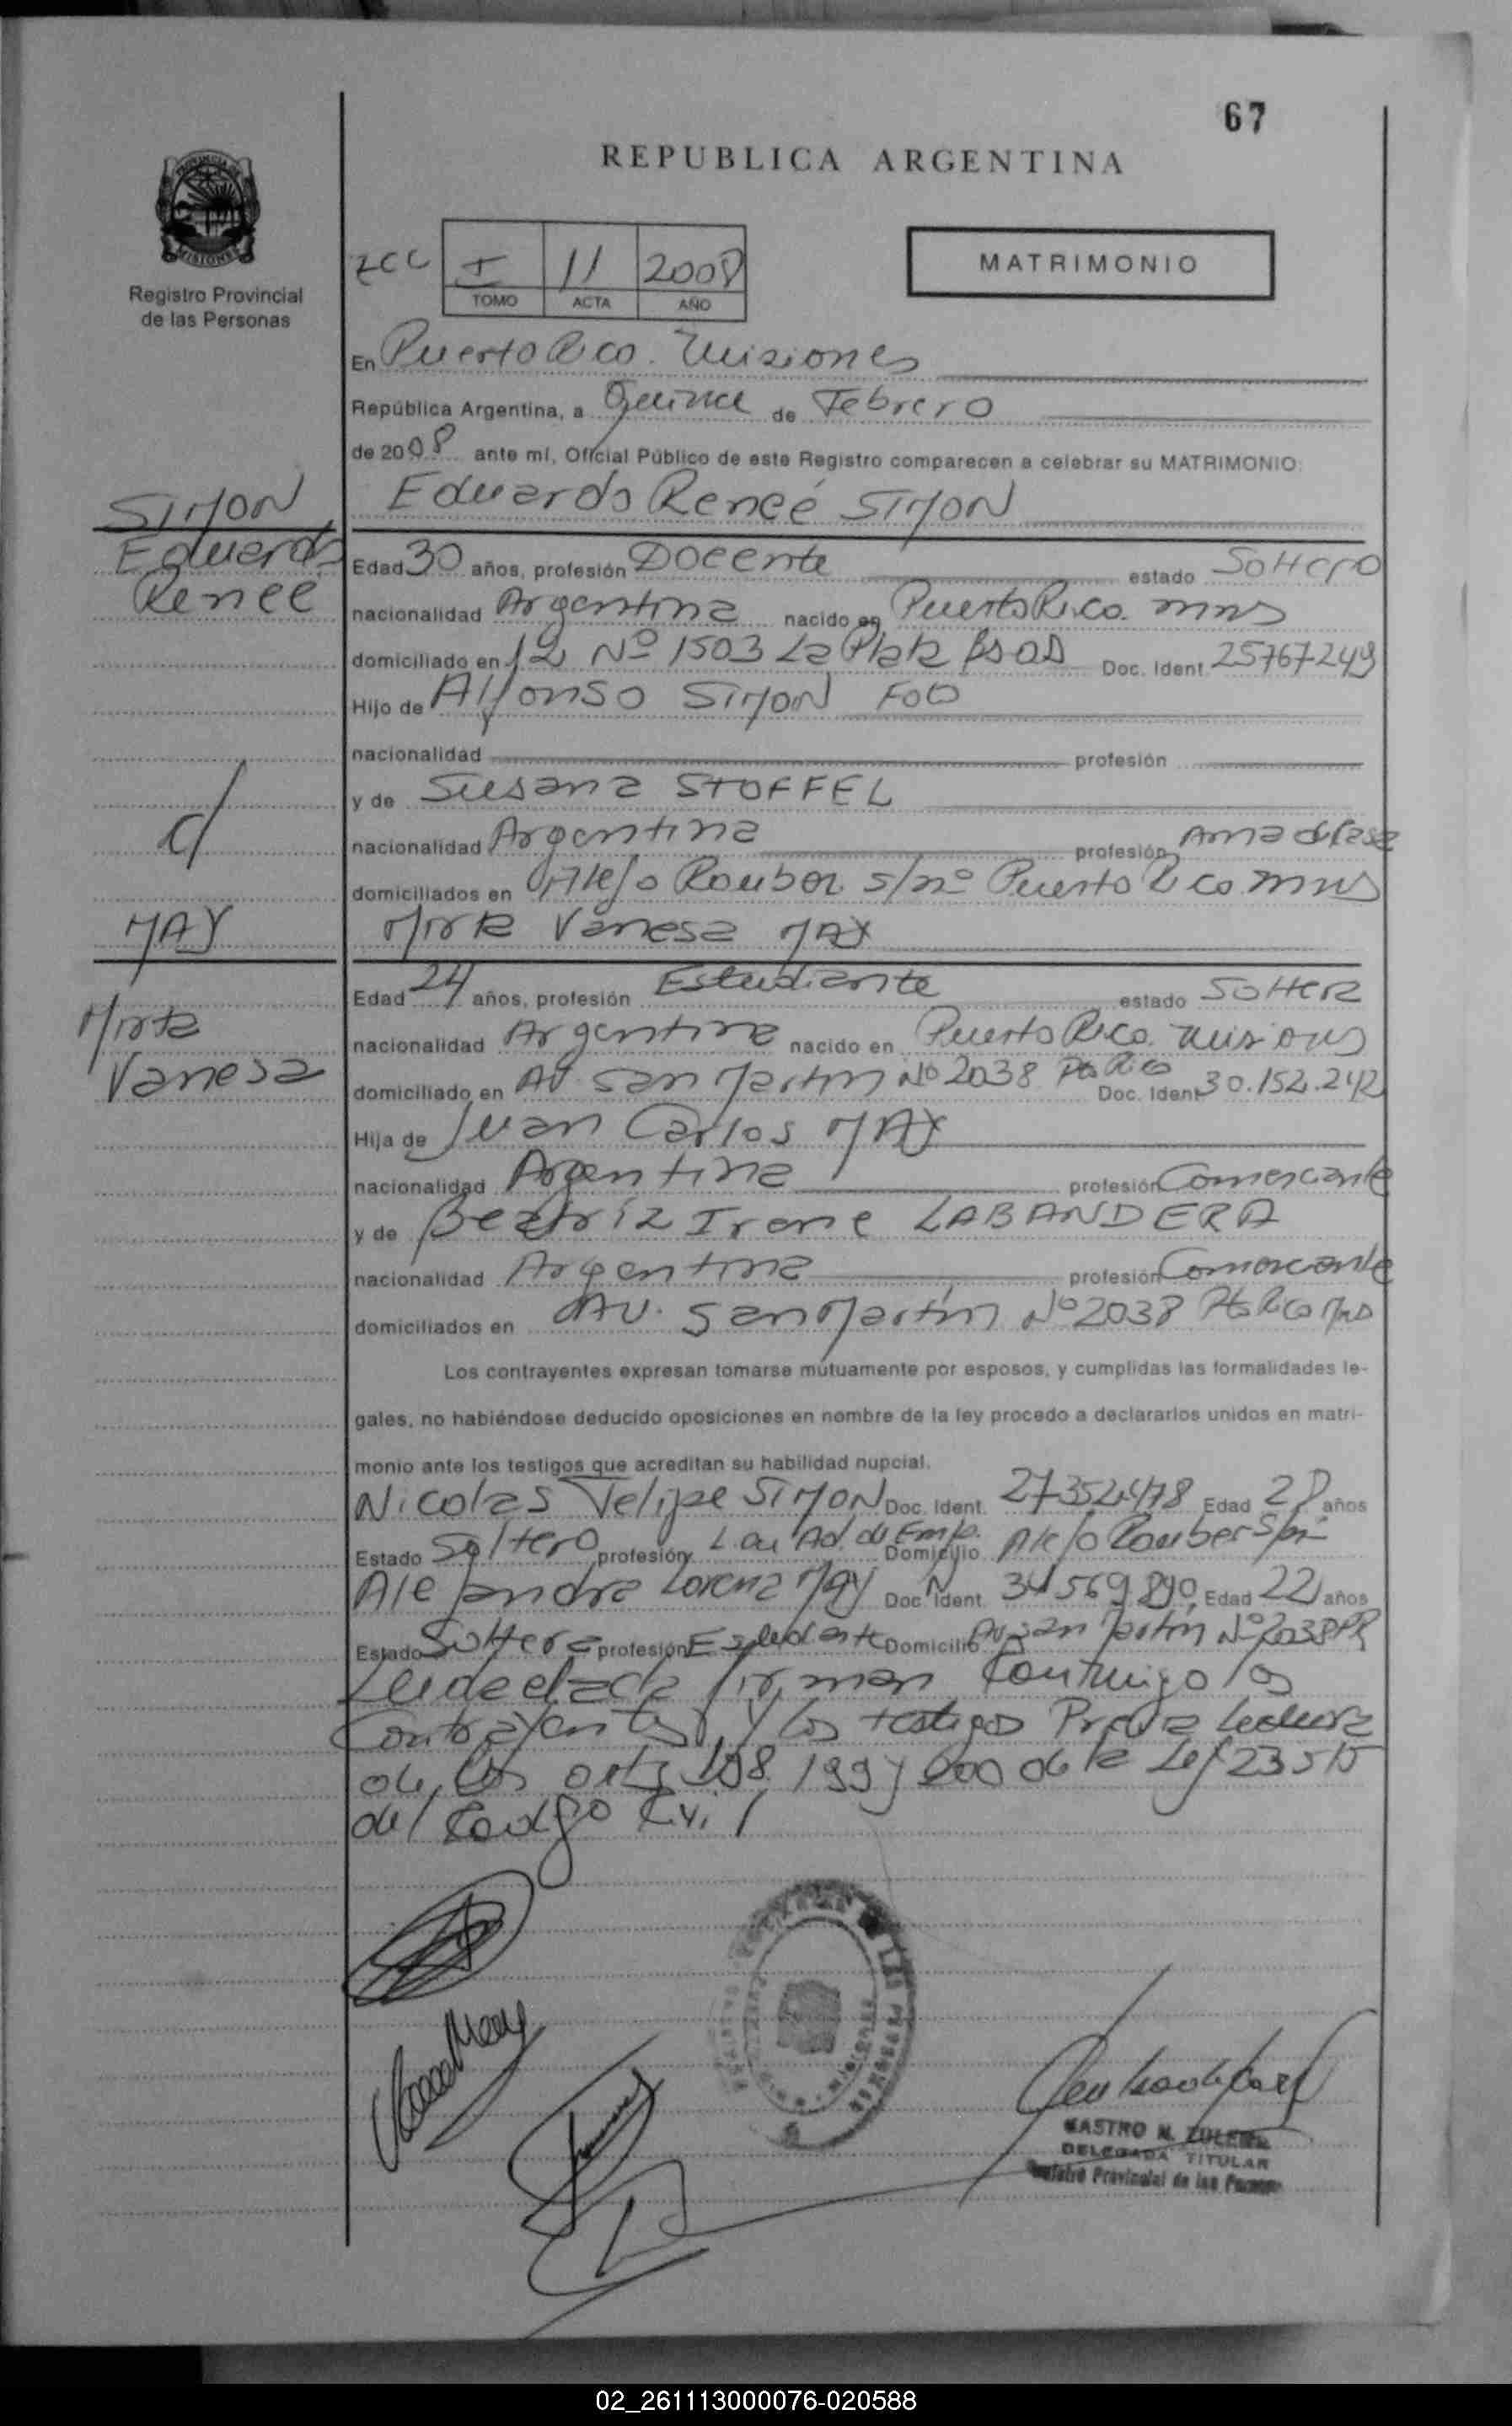 67
REPUBLICA ARGENTINA
PROVINCIA DE MISIONES
Registro Provincial
de las Personas
I 11 2008
TOMO ACTA AÑO
MATRIMONIO
En Puerto Rico. Misiones
República Argentina, a Quince de Febrero
de 2008 ante mí, Oficial Público de este Registro comparecen a celebrar su MATRIMONIO:
SIMON
Eduardo Reneé SIMON
Eduardo
Renee
Edad 30 años, profesión Docente estado Soltero
nacionalidad Argentina nacido en Puerto Rico. Mnes
domiciliado en 12 Nº 1503 La Plata Bs As Doc. Ident. 25767249
Hijo de Alfonso SIMON FDO
nacionalidad profesión
y de Susana STOFFEL
c/
nacionalidad Argentina profesión Ama de casa
domiciliados en Alejo Rouber s/nº Puerto Rico Mnes
MAY
Mirta Vanesa MAY
Mirta
Vanesa
Edad 24 años, profesión Estudiante estado Soltera
nacionalidad Argentina nacido en Puerto Rico. Misiones
domiciliado en Av. San Martin Nº 2038 Pto Rico Doc. Ident 30.152.242
Hija de Juan Carlos MAY
nacionalidad Argentina profesión Comerciante
y de Beatríz Irene LABANDERA
nacionalidad Argentina profesión Comerciante
domiciliados en Av. San Martín Nº 2038 Pto Rico Mns
Los contrayentes expresan tomarse mútuamente por esposos, y cumplidas las formalidades le-
gales, no habiéndose deducido oposiciones en nombre de la ley procedo a declararlos unidos en matri-
monio ante los testigos que acreditan su habilidad nupcial.
Nicolas Felipe SIMON Doc. Ident. 27352478 Edad 28 años
Estado Soltero profesión Ad. de Emp. Domicilio Alejo Rouber S/n
Alejandra Lorena MAY Doc. Ident. 34569890 Edad 22 años
Estado Soltera profesión Estudiante Domicilio Av San Martín Nº 2038 PR
Leida el acta firman conmigo los
Contrayentes y los testigos Previa lectura
de los arts 198 199 y 200 de la Ley 23515
del Codigo Civil
CASTRO N. ZULEMA
DELEGADA TITULAR
Registro Provincial de las Personas
02_261113000076-020588